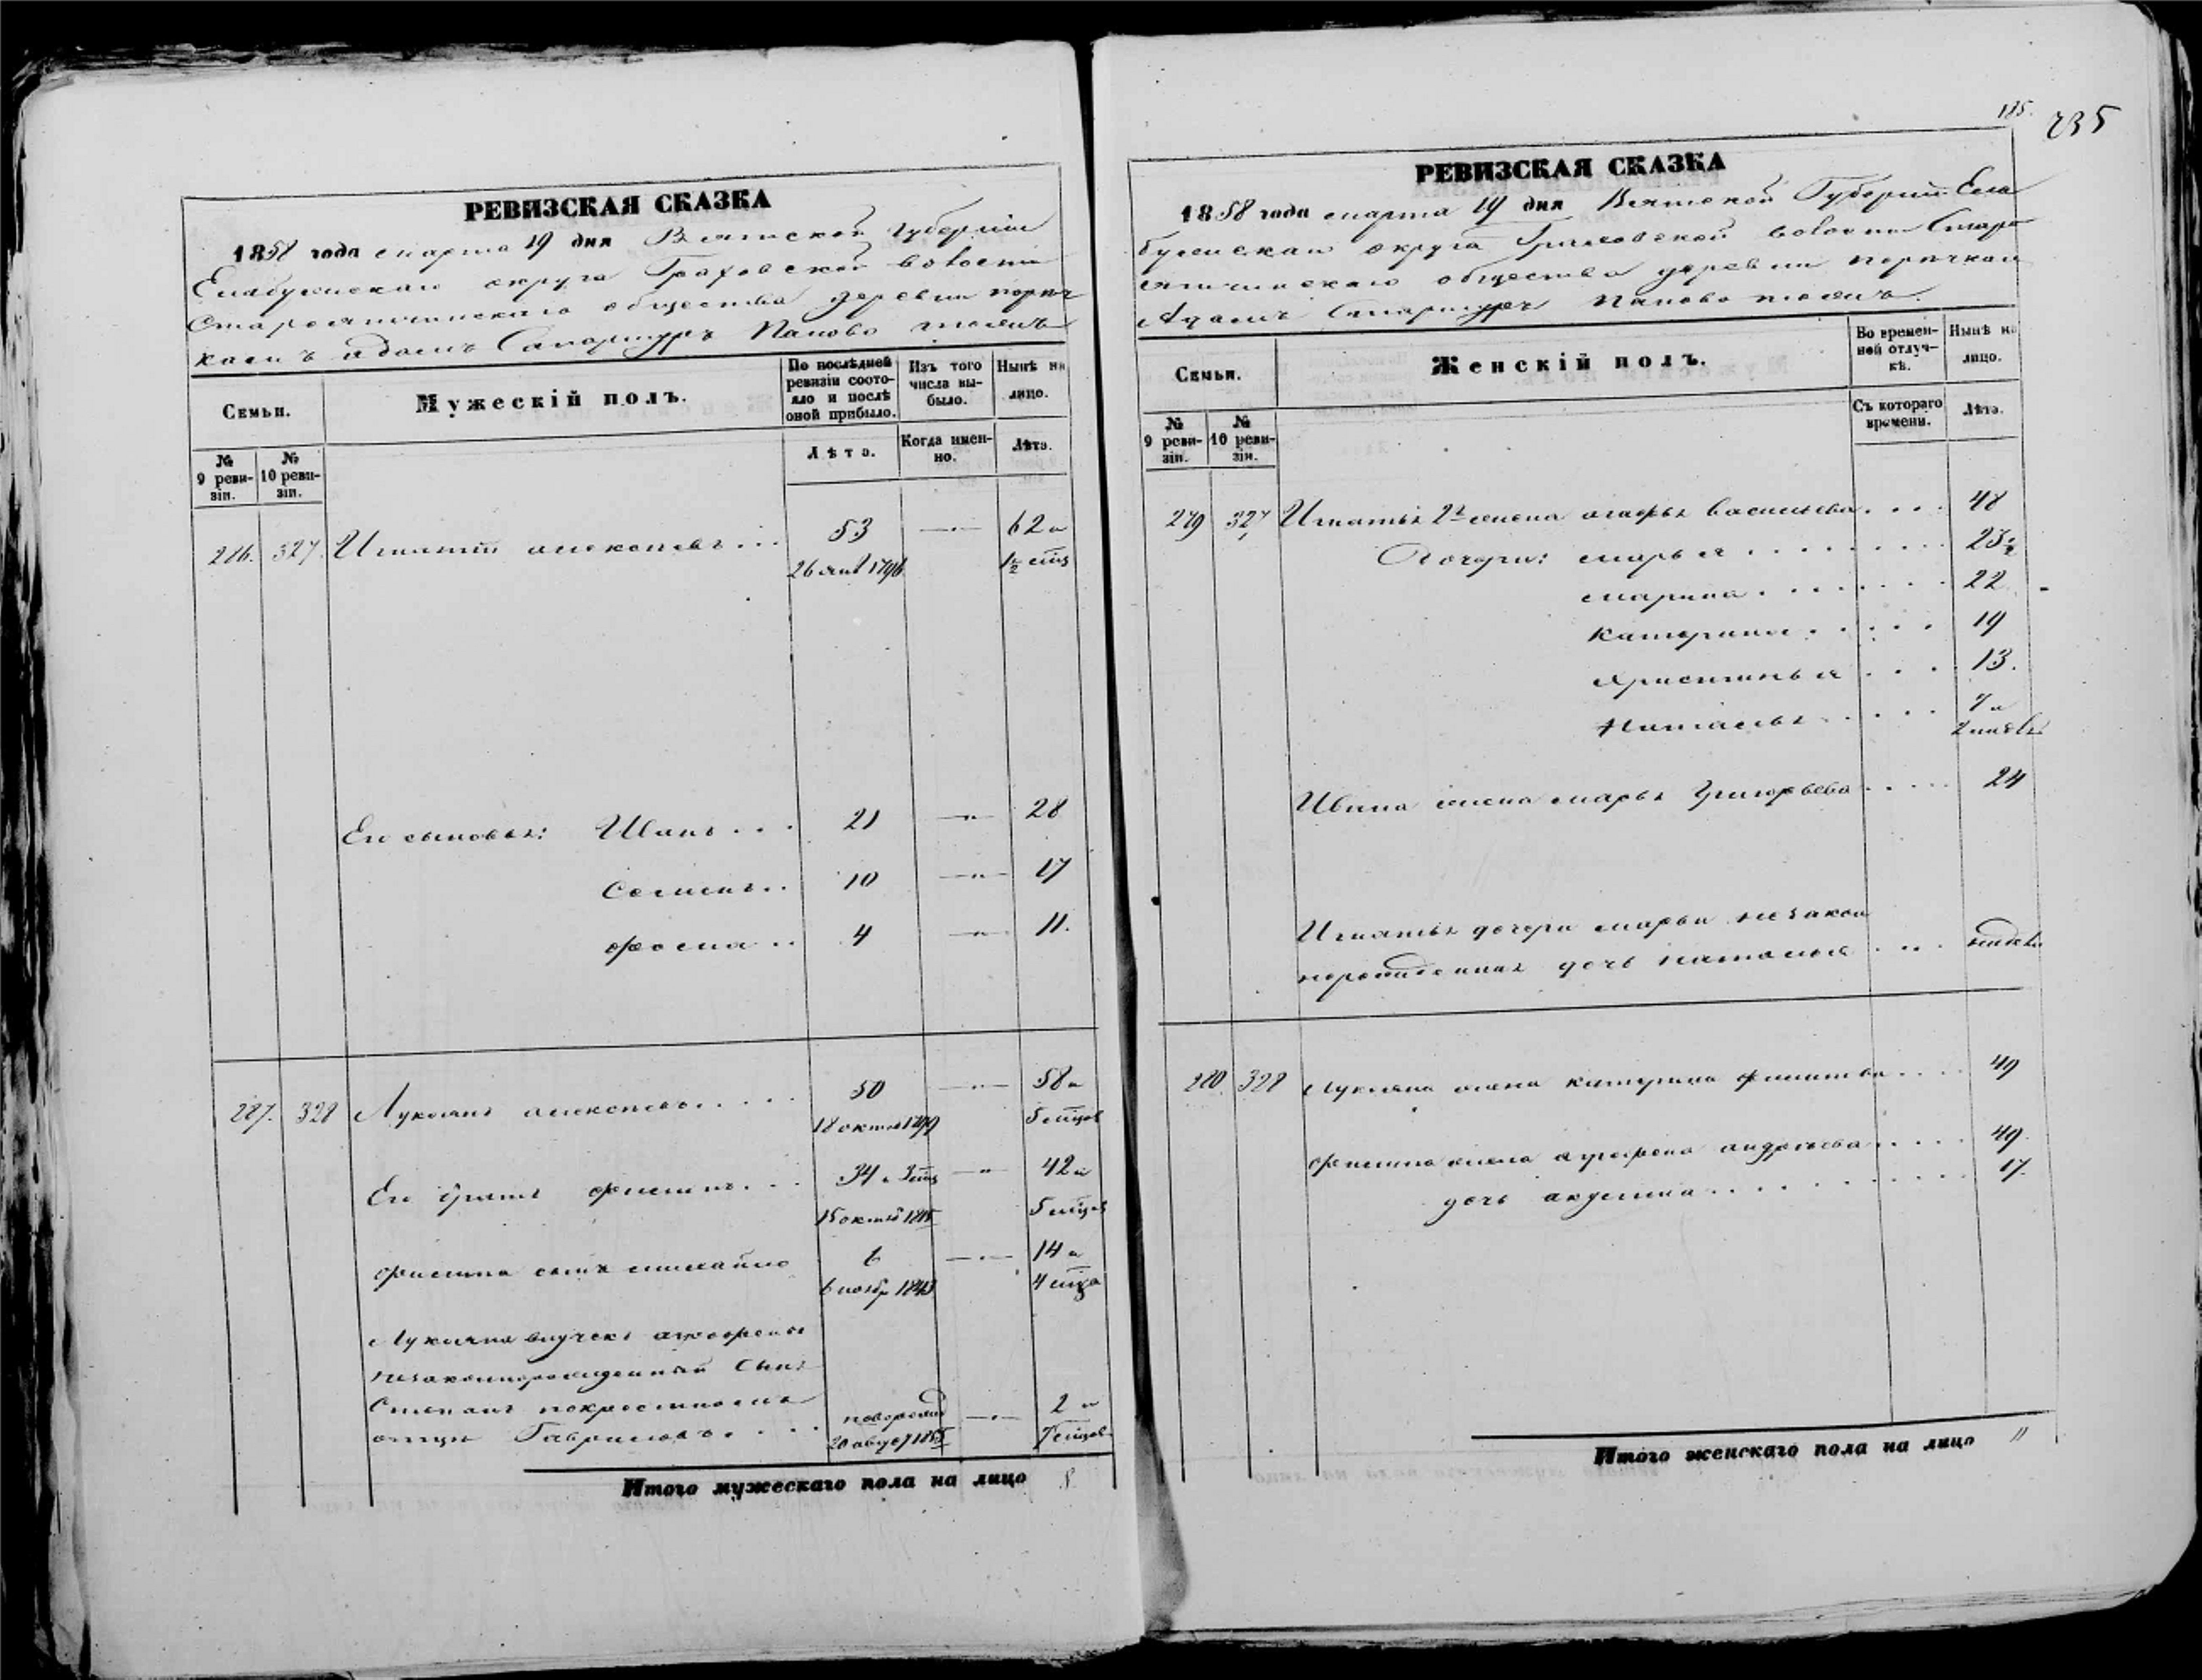 РЕВИЗСКАЯ СКАЗКА
1858 года марта 19 дня Вятской Губерніи
Елабужскаго округа Граховской волости
Староятчинскаго общества деревни
Адамъ Папово тожъ
Семьи.
Мужескій полъ.
По послѣдней ревизіи соото-яло и послѣ оной прибыло.
Изъ того числа вы-было.
Нынѣ на лицо.
№ 9 реви-зіи.
№ 10 реви-зіи.
Лѣта.
Когда имен-но.
Лѣта.
286. 327. Игнатій Алексѣевъ... 53 —"— 62 и
26 янв 1796 1½ мца
Его сыновья: Иванъ... 21 —"— 28
Семенъ.. 10 —"— 17
Фома.. 4 —"— 11.
287. 328 Лукоянъ Алексѣевъ..... 50 —"— 58 и
18 октяб 1799 5 мцов
Его братъ Филипъ... 34 и 5 мцъ —"— 42 и
15 октяб 1815 5 мцов
Филипа сынъ Михайло 6 —"— 14 и
6 ноябр 1843 4 мца
Лукояна внучекъ
незаконнорожденный сынъ
Степанъ по крестному
отцу Гавриловъ.... новорожд —"— 2 и
20 август 1855 7 мцов
Итого мужескаго пола на лицо 8
185.
235
РЕВИЗСКАЯ СКАЗКА
1858 года марта 19 дня Вятской Губерніи Ела
бужскаго округа Граховской волости Старо
ятчинскаго общества деревни
Адамъ Папово тожъ.
Семьи.
Женскій полъ.
Во времен-ной отлуч-кѣ.
Нынѣ на лицо.
№ 9 реви-зіи.
№ 10 реви-зіи.
Съ котораго времени.
Лѣта.
279 327 Игнатья 2я жена Агафья Васильева.... 48
Дочери: Марья....... 25½
Марина....... 22
Катерина..... 19
Христинья.... 13.
Наталья..... 7 и
2 недѣл
Ивана жена Марья Григорьева..... 24
Игнатья дочери Марьи незакон
норожденная дочь Наталья.... недели
280 328 Лукояна жена Катерина Филипова.... 49
Филипа жена Агрофена Андреева..... 49
дочь Акулина.......... 17.
Итого женскаго пола на лицо 11